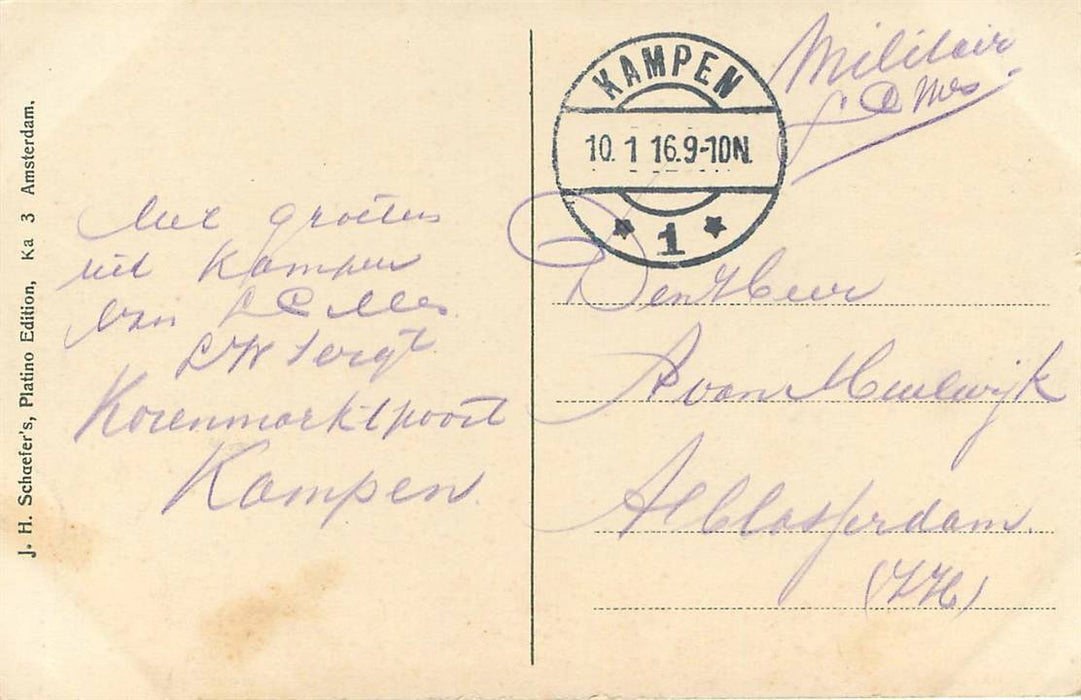 J. H. Schaefer's, Platino Edition, Ka 3 Amsterdam.
Met groeten
uit Kampen
van L C Mes
LW Sergt
Korenmarktpoort
Kampen.
KAMPEN
10. 1 16. 9-10N.
1
Militair
L C Mes
Den Heer
A van Meulwijk
Alblasserdam.
(ZH)